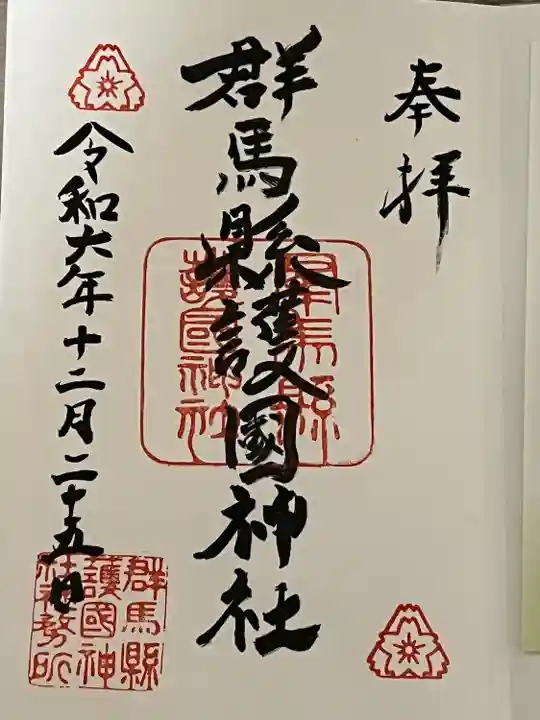 奉拝
群馬縣護國神社
群馬縣護國神社
令和六年十二月二十五日
群馬縣護國神社社務所